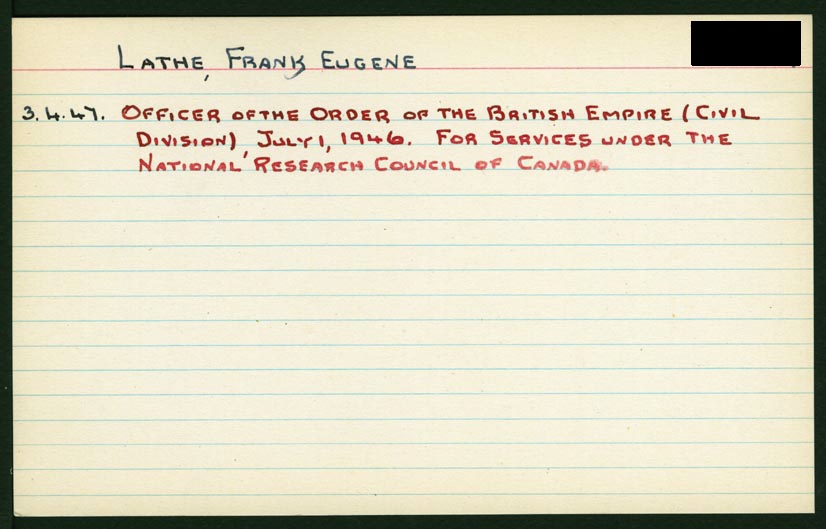 LATHE, FRANK EUGENE
3.4.47. OFFICER OF THE ORDER OF THE BRITISH EMPIRE (CIVIL
DIVISION), JULY 1, 1946. FOR SERVICES UNDER THE
NATIONAL RESEARCH COUNCIL OF CANADA.